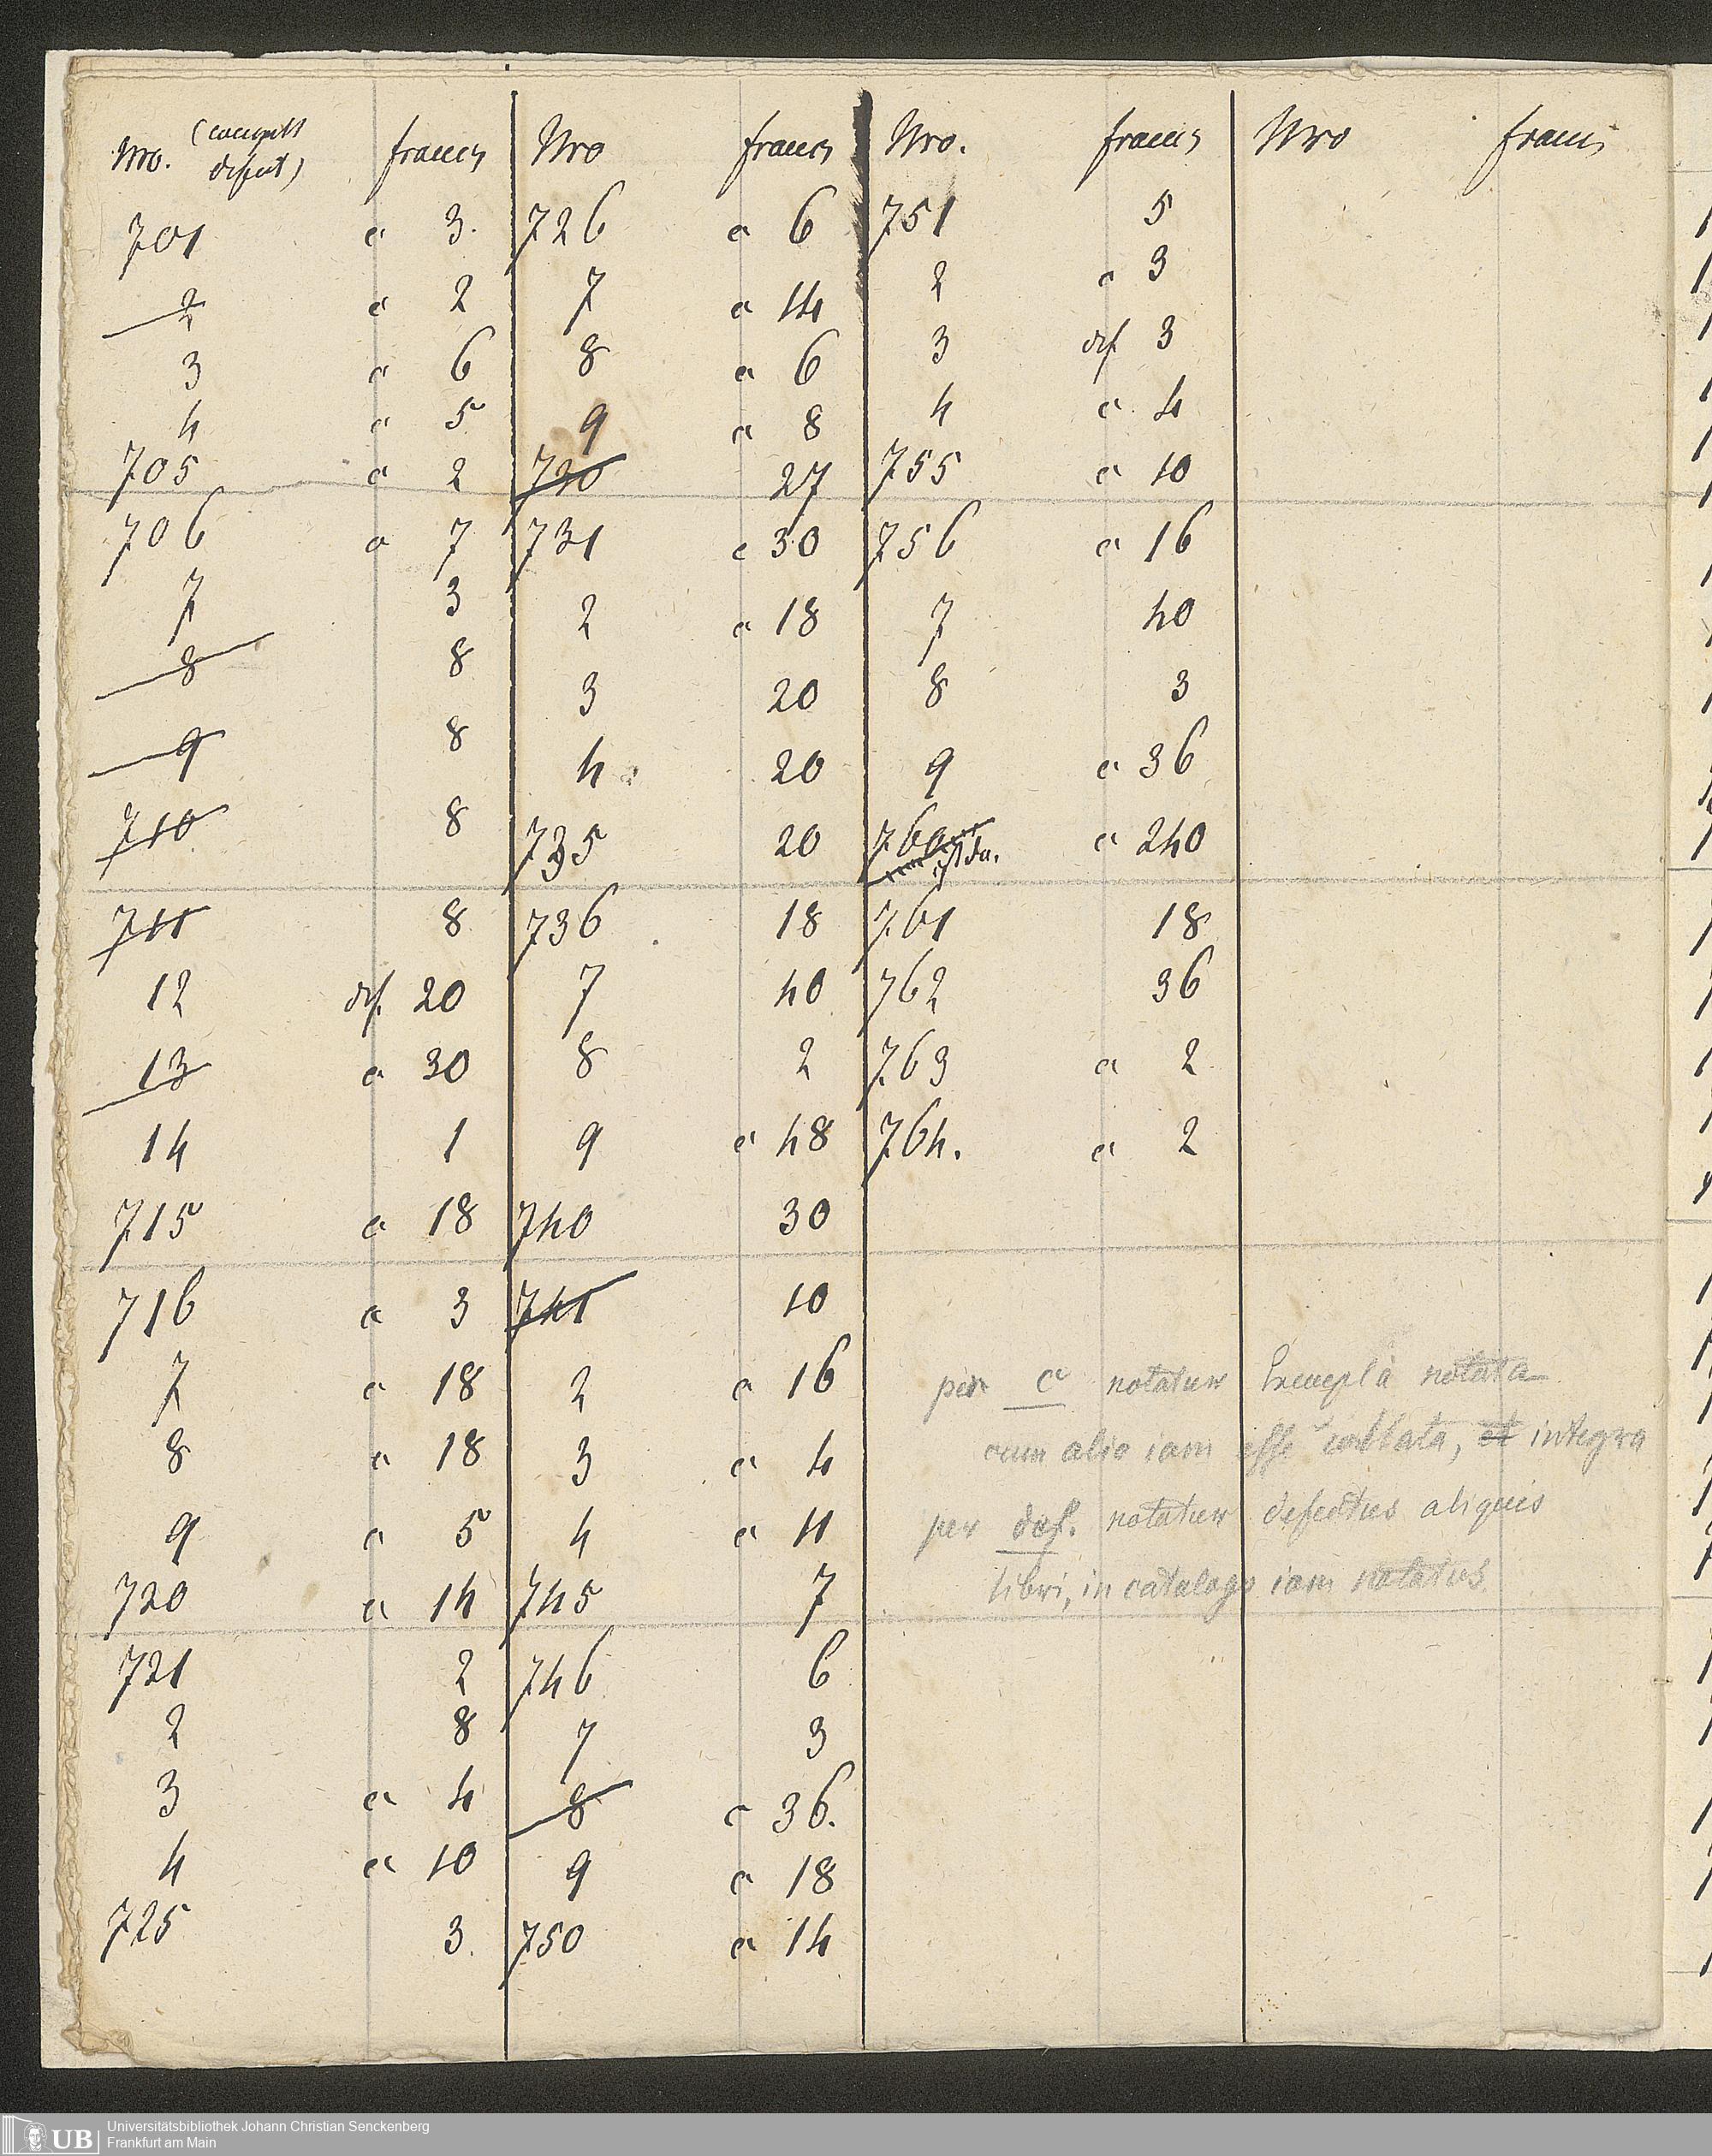 Nro. francs Nro francs Nro. francs Nro francs
defect)
701 c 3. 726 c 6 751 5
2 c 2 7 c 14 2 c 3
3 c 6 8 c 6 3 def 3
4 c 5 9 c 8 4 c 4
705 c 2 730 27 755 c 10
706 c 7 731 c 30 756 c 16
7 3 2 c 18 7 40
8 8 3 20 8 3
9 8 4 20 9 c 36
710 8 735 20 760 c 240
711 8 736 18 761 18
12 def. 20 7 40 762 36
13 c 30 8 2 763 c 2
14 1 9 c 48 764. c 2
715 c 18 740 30
716 c 3 741 10
7 c 18 2 c 16
8 c 18 3 c 4
9 c 5 4 c 11
720 c 14 745 7
721 2 746 6
2 8 7 3
3 c 4 8 c 36.
4 c 10 9 c 18
725 3. 750 c 14
per c notatur Exempla notata
cum alio iam esse collata, et integra
per def. notatur defectus aliquis
libri, in catalogo iam notatus.
UB Universitätsbibliothek Johann Christian Senckenberg
Frankfurt am Main